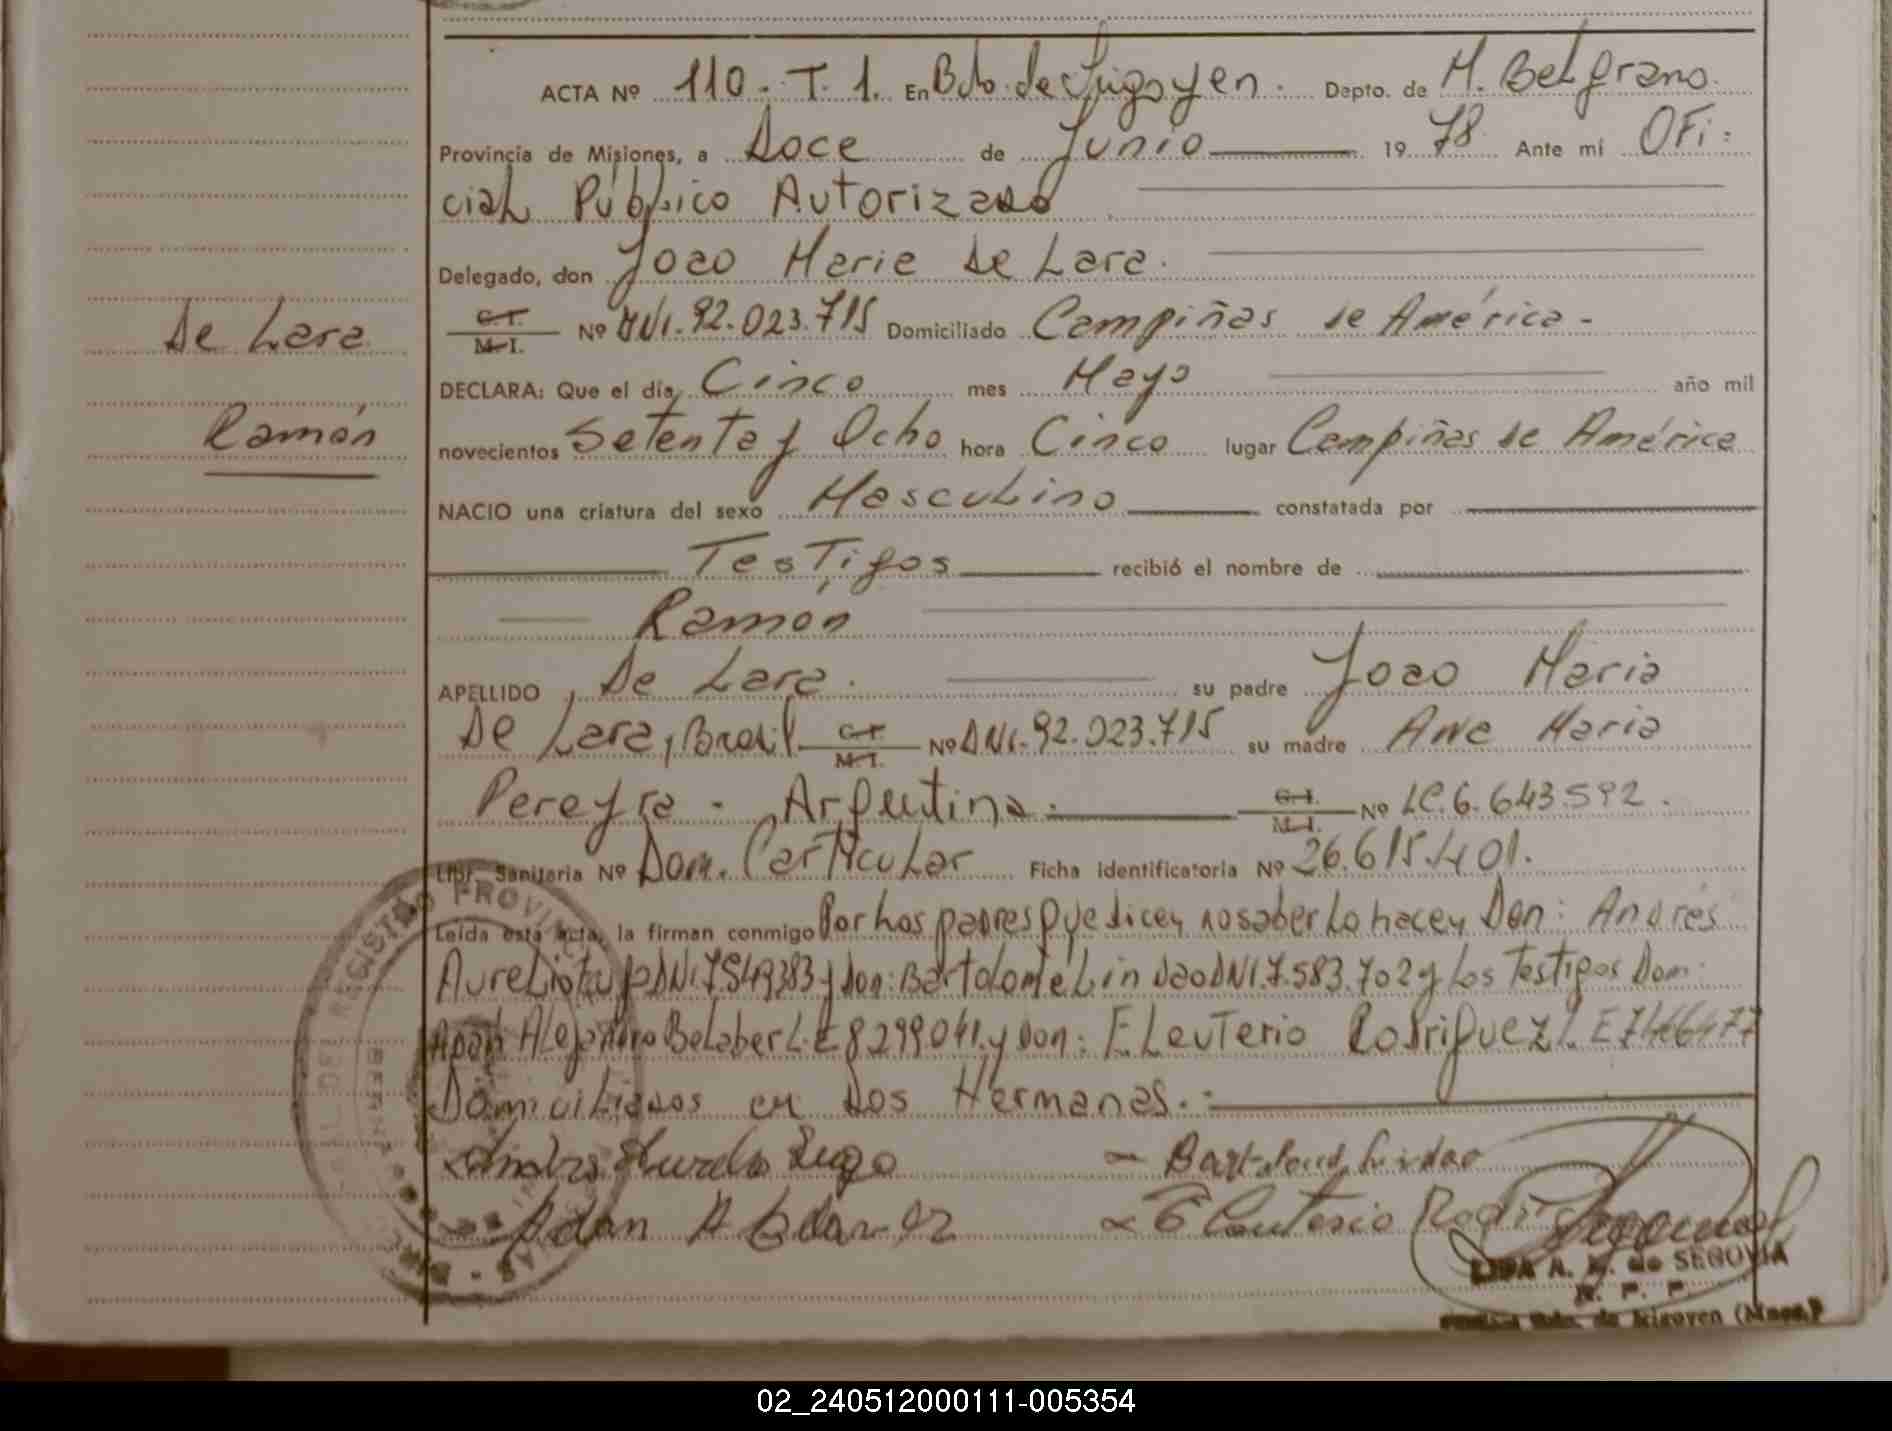 ACTA Nº 110. T. 1. En Bdo. de Irigoyen. Depto. de M. Belgrano.
Provincia de Misiones, a Doce de Junio 19 78 Ante mí Ofi:
cial Público Autorizado
Delegado, don Joao Maria de Lara.
C.I. M.I. Nº DNI. 92.023.715 Domiciliado Campiñas de América -
De Lara
DECLARA: Que el día, Cinco mes Mayo año mil
Ramón
novecientos Setenta y Ocho hora Cinco lugar Campiñas de América
NACIO una criatura del sexo Masculino constatada por
Testigos recibió el nombre de
Ramón
APELLIDO De Lara. su padre Joao Maria
De Lara, Brasil C.I. M.I. Nº DNI. 92.023.715 su madre Ana Maria
Pereyra - Argentina. C.I. M.I. Nº LC. 6.643.592.
Libr. Sanitaria Nº Dom. Particular Ficha Identificatoria Nº 26.615.401.
Leída esta acta, la firman conmigo Por los padres que dicen no saber lo hacen Don: Andrés
Aurelio DNI. 7.549.383 y Don: Bartolomé Lindao DNI. 7.583.702 y los Testigos Dom:
Adán Alejandro Belaber L.E 8299041. y Don: Eleuterio Rodriguez L.E 7466477
Domiciliados en Dos Hermanas.
Lugo - Lindao
Adan A Eleuterio
LIDA A. de SEGOVIA
R. P. P.
Bdo. de Irigoyen
REGISTRO PROVINCIAL
02_240512000111-005354